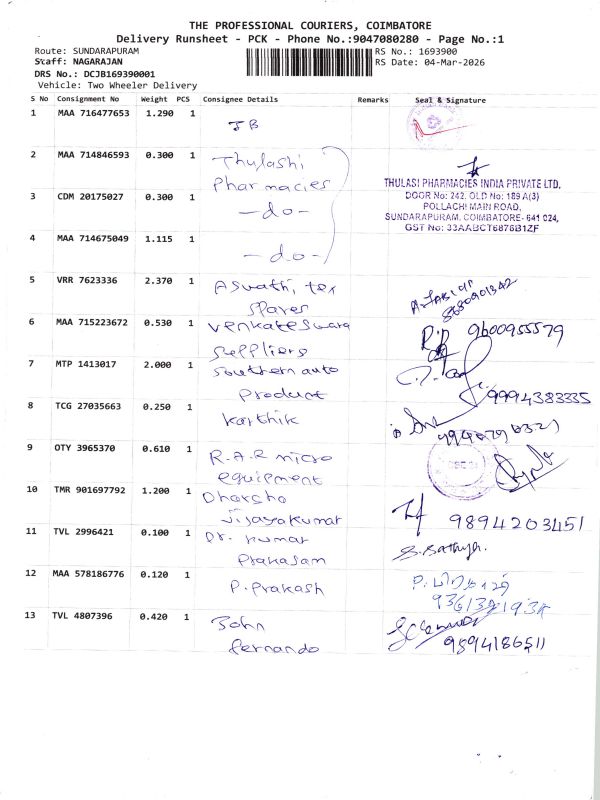 THE PROFESSIONAL COURIERS, COIMBATORE
Delivery Runsheet - PCK - Phone No.:9047080280 - Page No.:1
Route: SUNDARAPURAM
RS No.: 1693900
Staff: NAGARAJAN
RS Date: 04-Mar-2026
DRS No.: DCJB169390001
Vehicle: Two Wheeler Delivery
S No Consignment No Weight PCS Consignee Details Remarks Seal & Signature
1 MAA 716477653 1.290 1 JB
2 MAA 714846593 0.300 1 Thulashi
Pharmacies
3 CDM 20175027 0.300 1 -do-
4 MAA 714675049 1.115 1 -do-
THULASI PHARMACIES INDIA PRIVATE LTD,
DOOR No: 242, OLD No: 189 A(3)
POLLACHI MAIN ROAD,
SUNDARAPURAM, COIMBATORE- 641 024,
GST No: 33AABCT6876B1ZF
5 VRR 7623336 2.370 1 Aswathi tex
spares
8680901342
6 MAA 715223672 0.530 1 Venkateswara
suppliers
9600955579
7 MTP 1413017 2.000 1 Southern auto
Product
9994383335
8 TCG 27035663 0.250 1 Karthik
9 OTY 3965370 0.610 1 R.A.R micro
equipment
10 TMR 901697792 1.200 1 Dharsha
Vijayakumar
9894203451
11 TVL 2996421 0.100 1 Dr. Kumar
Prakasam
S. Sathya.
12 MAA 578186776 0.120 1 P. Prakash
13 TVL 4807396 0.420 1 John
fernando
9894186511